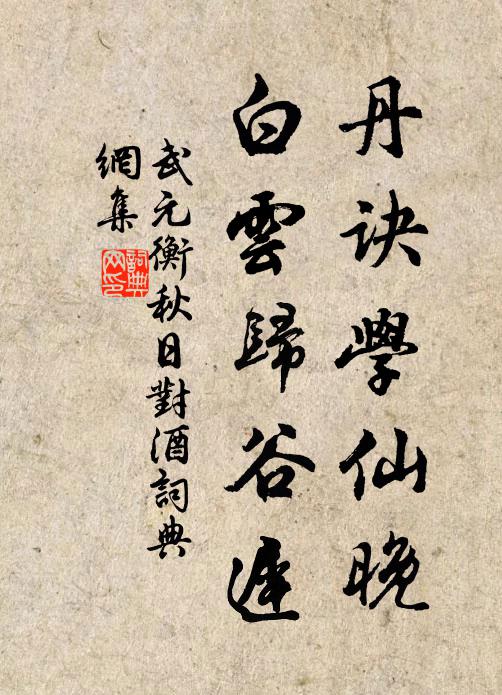 丹訣學仙晚
白雲歸谷遲
武元衡秋日對酒詞典
網集
詞典
网印